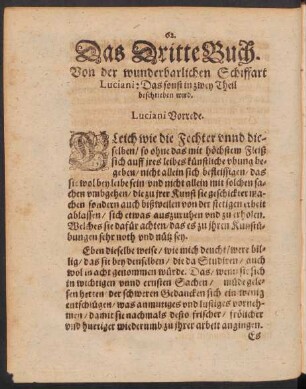 62.
Das Dritte Buch.
Von der wunderbarlichen Schiffart
Luciani: Das sonst in zwey Theil
beschrieben wird.
Luciani Vorrede.
GLeich wie die Fechter vnnd die-
selben / so ohne das mit höchstem Fleiß
sich auff jres leibes künstliche vbung be-
geben / nicht allein sich befleissigen / das
sie wol bey leibe sein vnd nicht allein mit solchen sa-
chen vmbgehen / die zu jrer Kunst sie geschickter ma-
chen sondern auch bißweilen von der stetigen erbeit
ablassen / sich etwas auszuruhen vnd zu erholen.
Welches sie dafür achten / das es zu jhren Kunstü-
bungen sehr noth vnd nütz sey.
Eben dieselbe weise / wie mich deucht / were bil-
lig / das sie bey denselben / die da Studiren / auch
wol in acht genommen würde. Das / wenn sie sich
in wichtigen vnnd ernsten Sachen / müde gele-
sen hetten / der schweren Gedancken sich ein wenig
entschlügen / was anmutiges vnd lustiges vorneh-
men / damit sie nachmals desto frischer / frölicher
vnd hurtiger wiederumb zu jhrer arbeit angingen.
Es